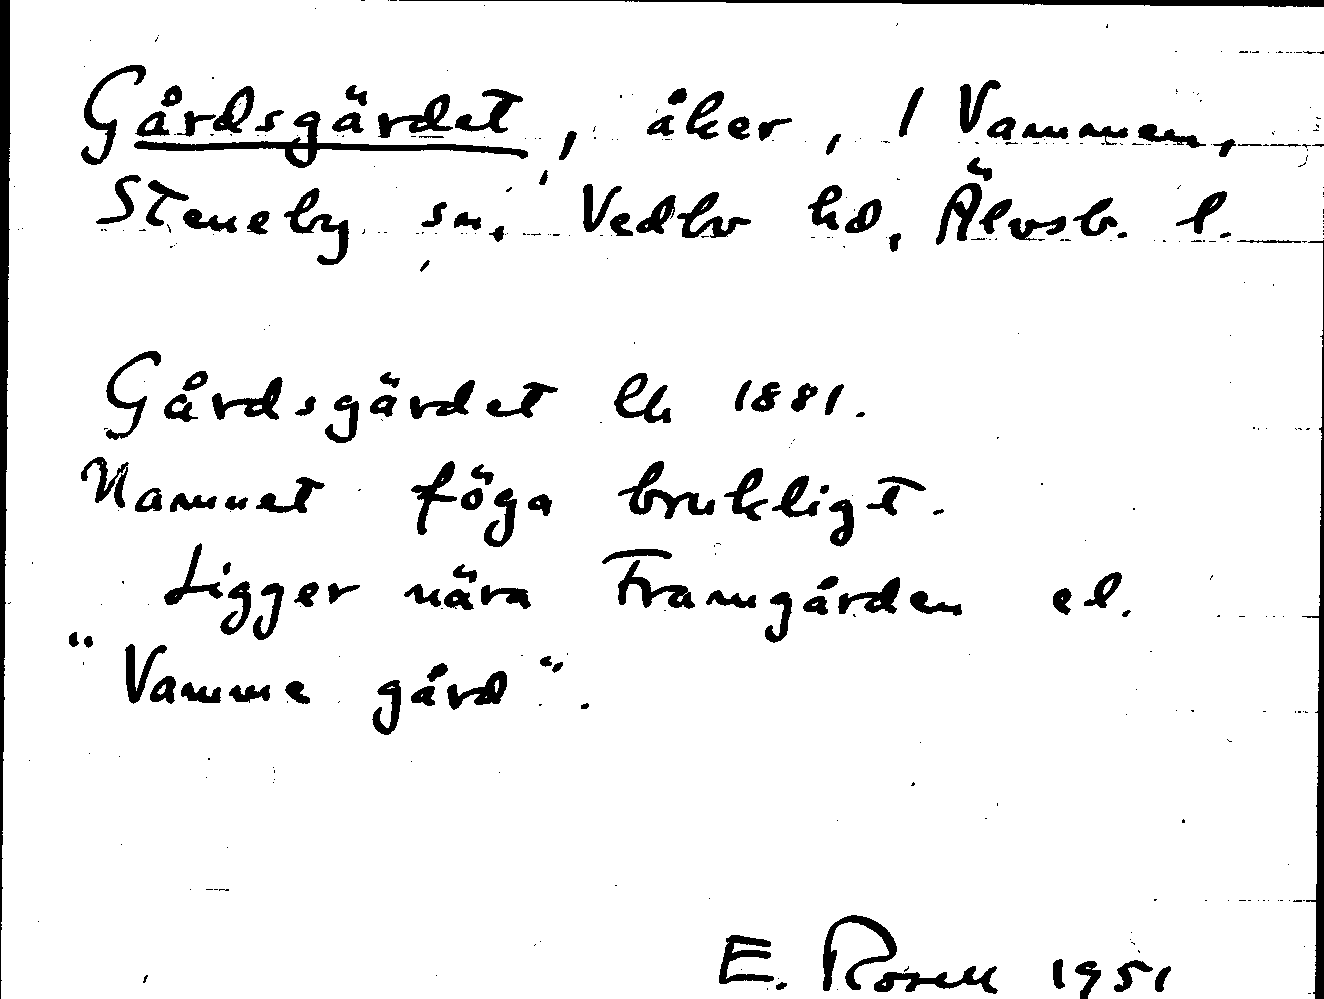 Gårdsgärdet, åker, 1 Vammen,
Steneby sn, Vedbo hd, Älvsb. l.
Gårdsgärdet Ek 1881.
Namnet föga brukligt.
Ligger nära Framgården el.
"Vamme gård".
E. Rosell 1951